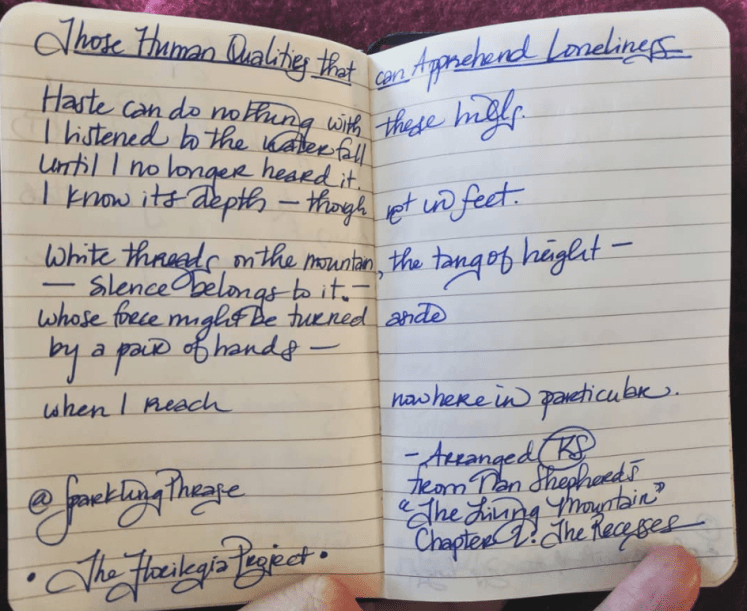 Those Human Qualities that can Apprehend Loneliness
Haste can do nothing with these hills.
I listened to the waterfall
until I no longer heard it.
I know its depth — though not in feet.
White threads on the mountain, the tang of height —
— Silence belongs to it. —
whose force might be turned aside
by a pair of hands —
when I reach nowhere in particular.
- Arranged RS
from Nan Shepherd's
"The Living Mountain"
Chapter 2: The Recesses
@SparklingPhrase
• The Florilegia Project •